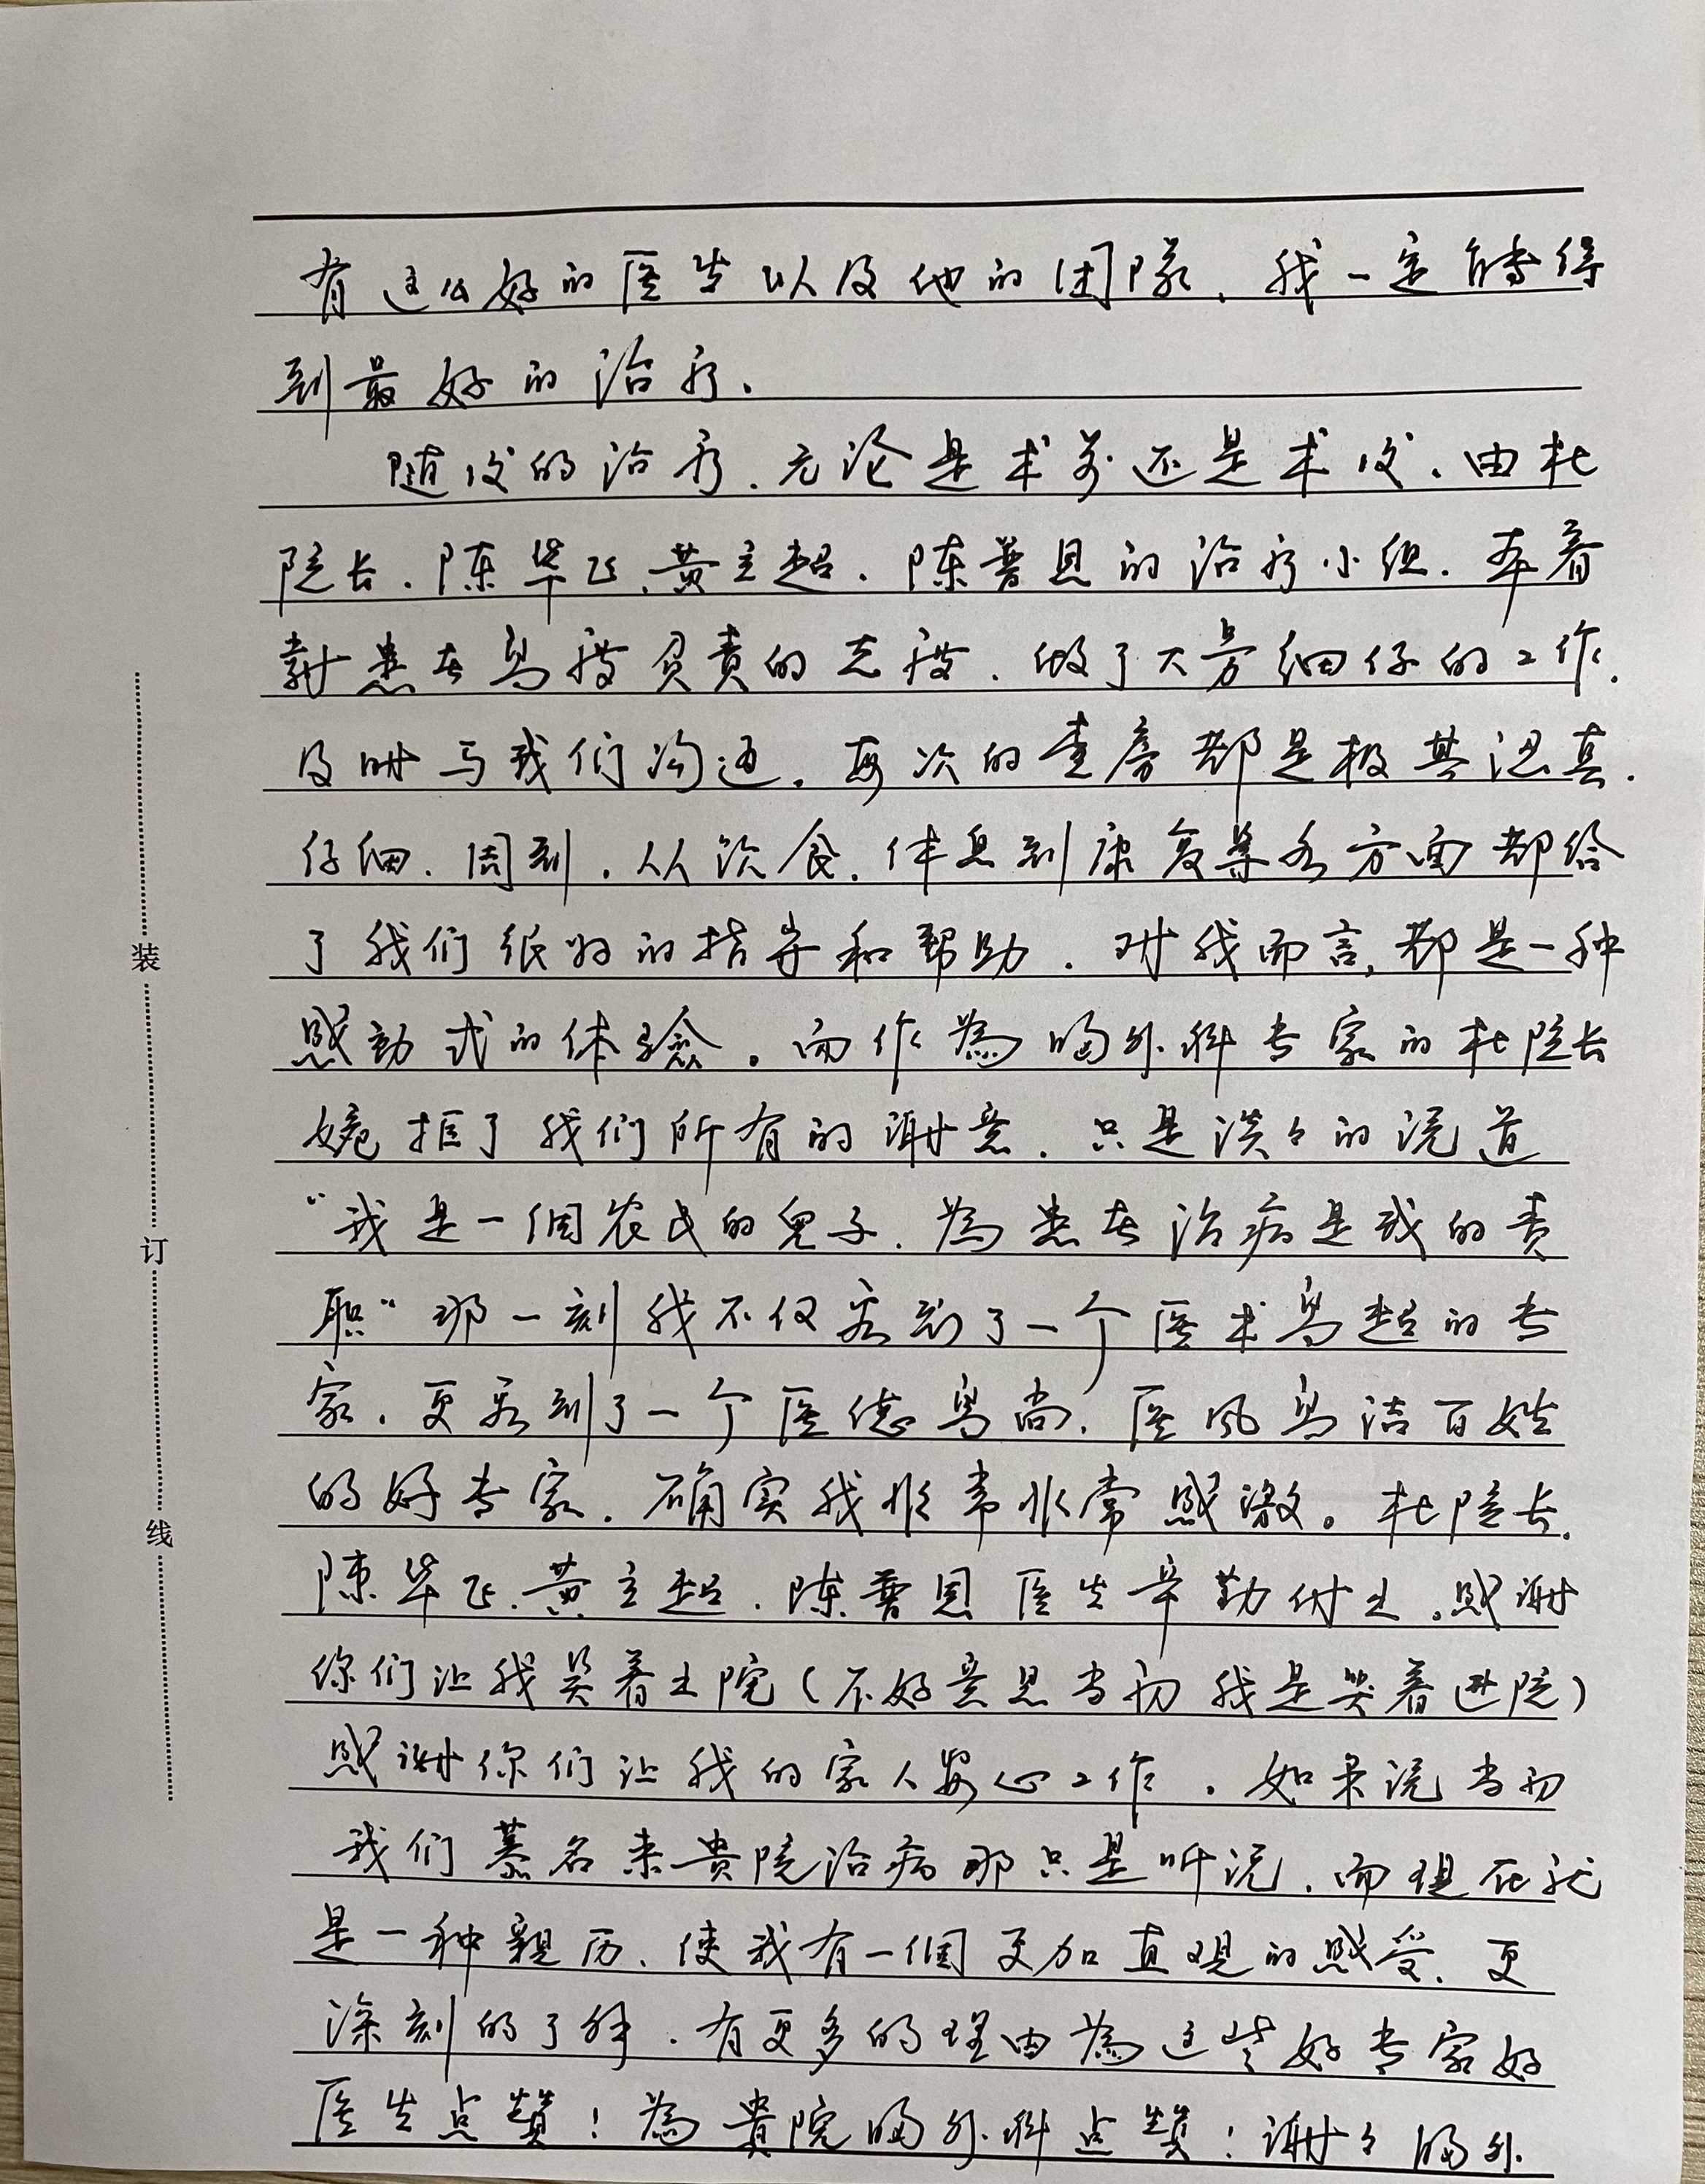 有这么好的医生以及他的团隊、我一定能得
到最好的治疗.
随后的治疗.无论是术前还是术后、由杜
院长.陈华飞、黄立超.陈普恩的治疗小组.本着
對患者高度負責的态度.做了大量细仔的工作.
及时与我们沟通.每次的查房都是极其认真.
仔细、周到.从饮食.休息到康复等各方面都给
了我们很好的指导和帮助.对我而言,都是一种
感动式的体验.而作為 外科专家的杜院长
婉拒了我们所有的谢意.只是淡々的说道
“我是一個农民的兒子.為患者治病是我的责
职”那一刻我不仅看到了一个医术高超的专
家.更看到了一个医德高尚.医风高洁百姓
的好专家.确实我非常非常感激。杜院长.
陳华飞.黄立超.陈普恩医生辛勤付出.感谢
你们让我笑着出院(不好意思当初我是哭着进院)
感谢你们让我的家人安心工作.如果说当初
我们慕名来贵院治病那只是听说.而現在就
是一种親历、使我有一個更加直观的感受.更
深刻的了解.有更多的理由為这些好专家好
医生点赞!為貴院 外科点赞!谢々 外
装
订
线